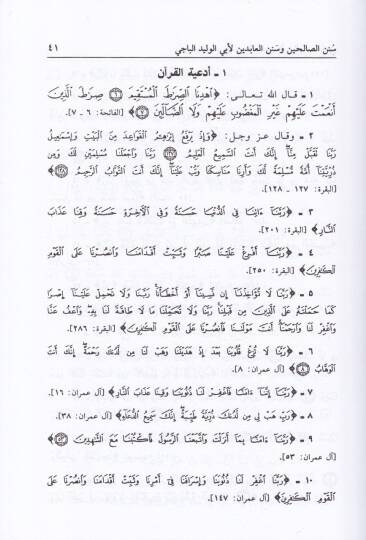 سُنن الصالحين وسَنن العابدين لأبي الوليد الباجي ٤١
١ - أدعية القرآن
١ - قال الله تعالى: ﴿اهْدِنَا الصِّرَاطَ الْمُسْتَقِيمَ ٦ صِرَاطَ الَّذِينَ
أَنْعَمْتَ عَلَيْهِمْ غَيْرِ الْمَغْضُوبِ عَلَيْهِمْ وَلَا الضَّالِّينَ ٧﴾ [الفاتحة: ٦ - ٧].
٢ - وقال عز وجل: ﴿وَإِذْ يَرْفَعُ إِبْرَاهِيمُ الْقَوَاعِدَ مِنَ الْبَيْتِ وَإِسْمَاعِيلُ
رَبَّنَا تَقَبَّلْ مِنَّا إِنَّكَ أَنْتَ السَّمِيعُ الْعَلِيمُ ١٢٧ رَبَّنَا وَاجْعَلْنَا مُسْلِمَيْنِ لَكَ وَمِنْ
ذُرِّيَّتِنَا أُمَّةً مُسْلِمَةً لَكَ وَأَرِنَا مَنَاسِكَنَا وَتُبْ عَلَيْنَا إِنَّكَ أَنْتَ التَّوَّابُ الرَّحِيمُ ١٢٨﴾
[البقرة: ١٢٧ - ١٢٨].
٣ - ﴿رَبَّنَا آتِنَا فِي الدُّنْيَا حَسَنَةً وَفِي الْآخِرَةِ حَسَنَةً وَقِنَا عَذَابَ
النَّارِ﴾ [البقرة: ٢٠١].
٤ - ﴿رَبَّنَا أَفْرِغْ عَلَيْنَا صَبْرًا وَثَبِّتْ أَقْدَامَنَا وَانْصُرْنَا عَلَى الْقَوْمِ
الْكَافِرِينَ﴾ [البقرة: ٢٥٠].
٥ - ﴿رَبَّنَا لَا تُؤَاخِذْنَا إِنْ نَسِينَا أَوْ أَخْطَأْنَا رَبَّنَا وَلَا تَحْمِلْ عَلَيْنَا إِصْرًا
كَمَا حَمَلْتَهُ عَلَى الَّذِينَ مِنْ قَبْلِنَا رَبَّنَا وَلَا تُحَمِّلْنَا مَا لَا طَاقَةَ لَنَا بِهِ وَاعْفُ عَنَّا
وَاغْفِرْ لَنَا وَارْحَمْنَا أَنْتَ مَوْلَانَا فَانْصُرْنَا عَلَى الْقَوْمِ الْكَافِرِينَ﴾ [البقرة: ٢٨٦].
٦ - ﴿رَبَّنَا لَا تُزِغْ قُلُوبَنَا بَعْدَ إِذْ هَدَيْتَنَا وَهَبْ لَنَا مِنْ لَدُنْكَ رَحْمَةً إِنَّكَ أَنْتَ
الْوَهَّابُ ٨﴾ [آل عمران: ٨].
٧ - ﴿رَبَّنَا إِنَّنَا آمَنَّا فَاغْفِرْ لَنَا ذُنُوبَنَا وَقِنَا عَذَابَ النَّارِ﴾ [آل عمران: ١٦].
٨ - ﴿رَبِّ هَبْ لِي مِنْ لَدُنْكَ ذُرِّيَّةً طَيِّبَةً إِنَّكَ سَمِيعُ الدُّعَاءِ﴾ [آل عمران: ٣٨].
٩ - ﴿رَبَّنَا آمَنَّا بِمَا أَنْزَلْتَ وَاتَّبَعْنَا الرَّسُولَ فَاكْتُبْنَا مَعَ الشَّاهِدِينَ ٥٣﴾
[آل عمران: ٥٣].
١٠ - ﴿رَبَّنَا اغْفِرْ لَنَا ذُنُوبَنَا وَإِسْرَافَنَا فِي أَمْرِنَا وَثَبِّتْ أَقْدَامَنَا وَانْصُرْنَا عَلَى
الْقَوْمِ الْكَافِرِينَ﴾ [آل عمران: ١٤٧].